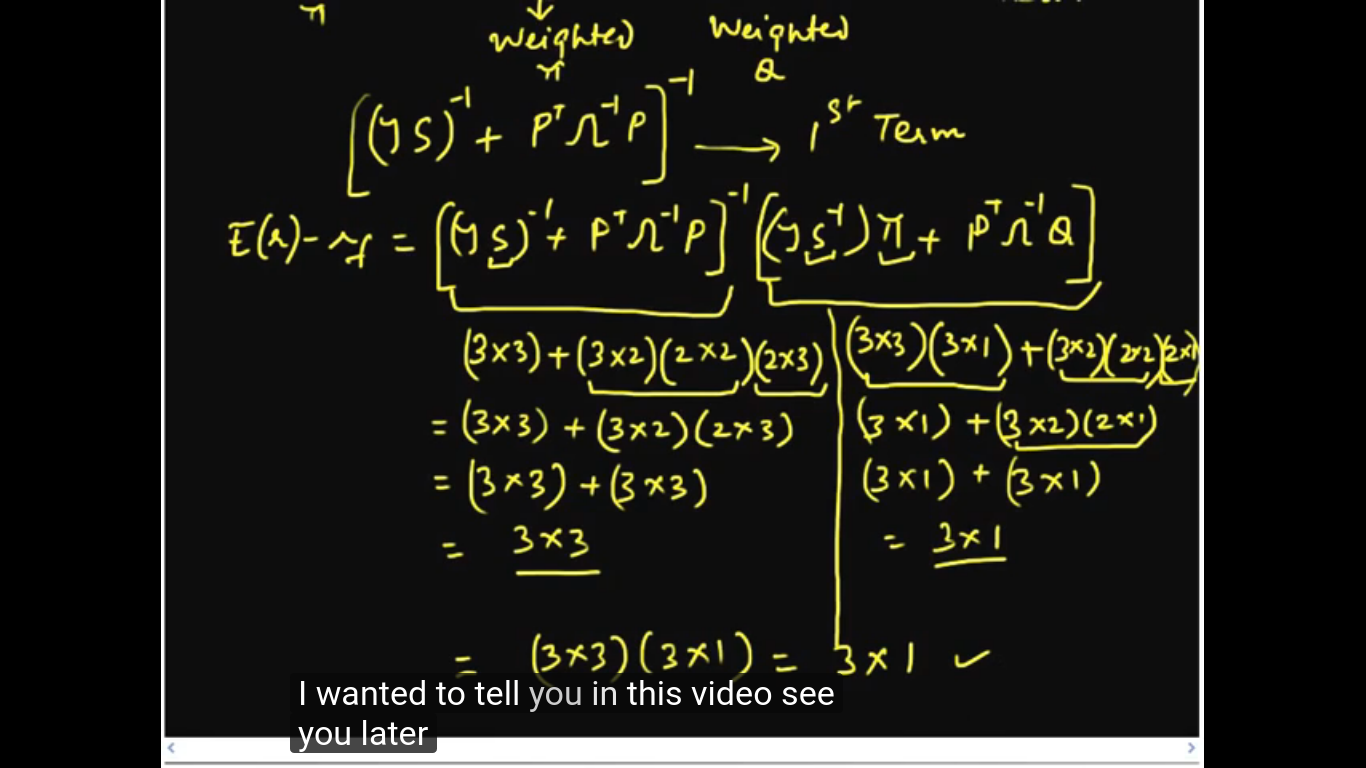 π
Weighted Weighted
π Q
[(τS)⁻¹ + PᵀΩ⁻¹P]⁻¹ → 1ˢᵗ Term
E(r) - rf = [(τS)⁻¹ + PᵀΩ⁻¹P]⁻¹ [(τS⁻¹)π + PᵀΩ⁻¹Q]
(3×3) + (3×2)(2×2)(2×3) (3×3)(3×1) + (3×2)(2×2)(2×1)
= (3×3) + (3×2)(2×3) (3×1) + (3×2)(2×1)
= (3×3) + (3×3) (3×1) + (3×1)
= 3×3 = 3×1
= (3×3)(3×1) = 3×1 ✓
I wanted to tell you in this video see
you later